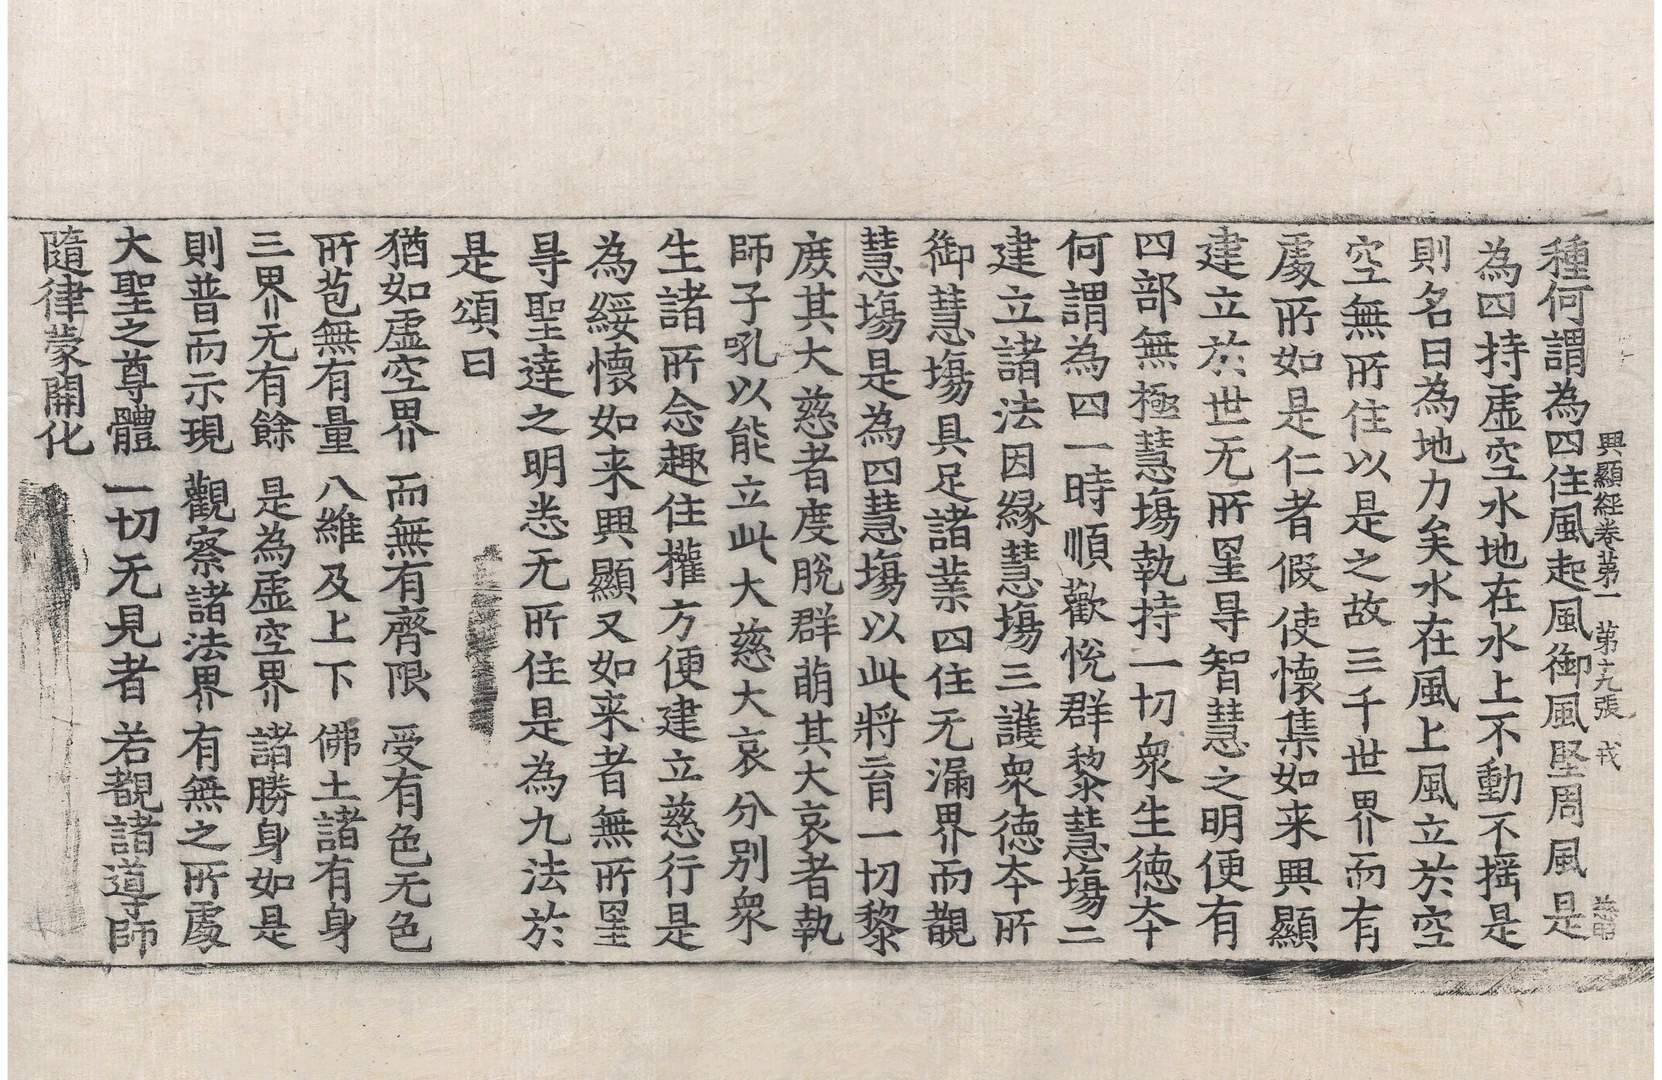 興顯經卷苐一　苐十九張　戎
種何謂為四住風起風御風堅周風是
為四持虛空水地在水上不動不揺是
則名曰為地力矣水在風上風立於空
空無所住以是之故三千世界而有
處所如是仁者假使懐集如来興顯
建立於世无所罣㝵智慧之明便有
四部無極慧塲執持一切衆生徳夲
何謂為四一時順歡恱群黎慧塲二
建立諸法因縁慧塲三護衆徳夲所
御慧塲具足諸業四住无漏界而覩
慧塲是為四慧塲以此將育一切黎
庶其大慈者度脫群萌其大哀者執
師子吼以能立此大慈大哀分別衆
生諸所念趣住權方便建立慈行是
為綏懐如来興顯又如来者無所罣
㝵聖達之明悉无所住是為九法於
是頌曰
猶如虛空界　而無有齊限　受有色无色
所苞無有量　八維及上下　佛土諸有身
三界无有餘　是為虛空界　諸勝身如是
則普而示現　觀察諸法界　有無之所處
大聖之尊體　一切无見者　若覩諸導師
隨律蒙開化